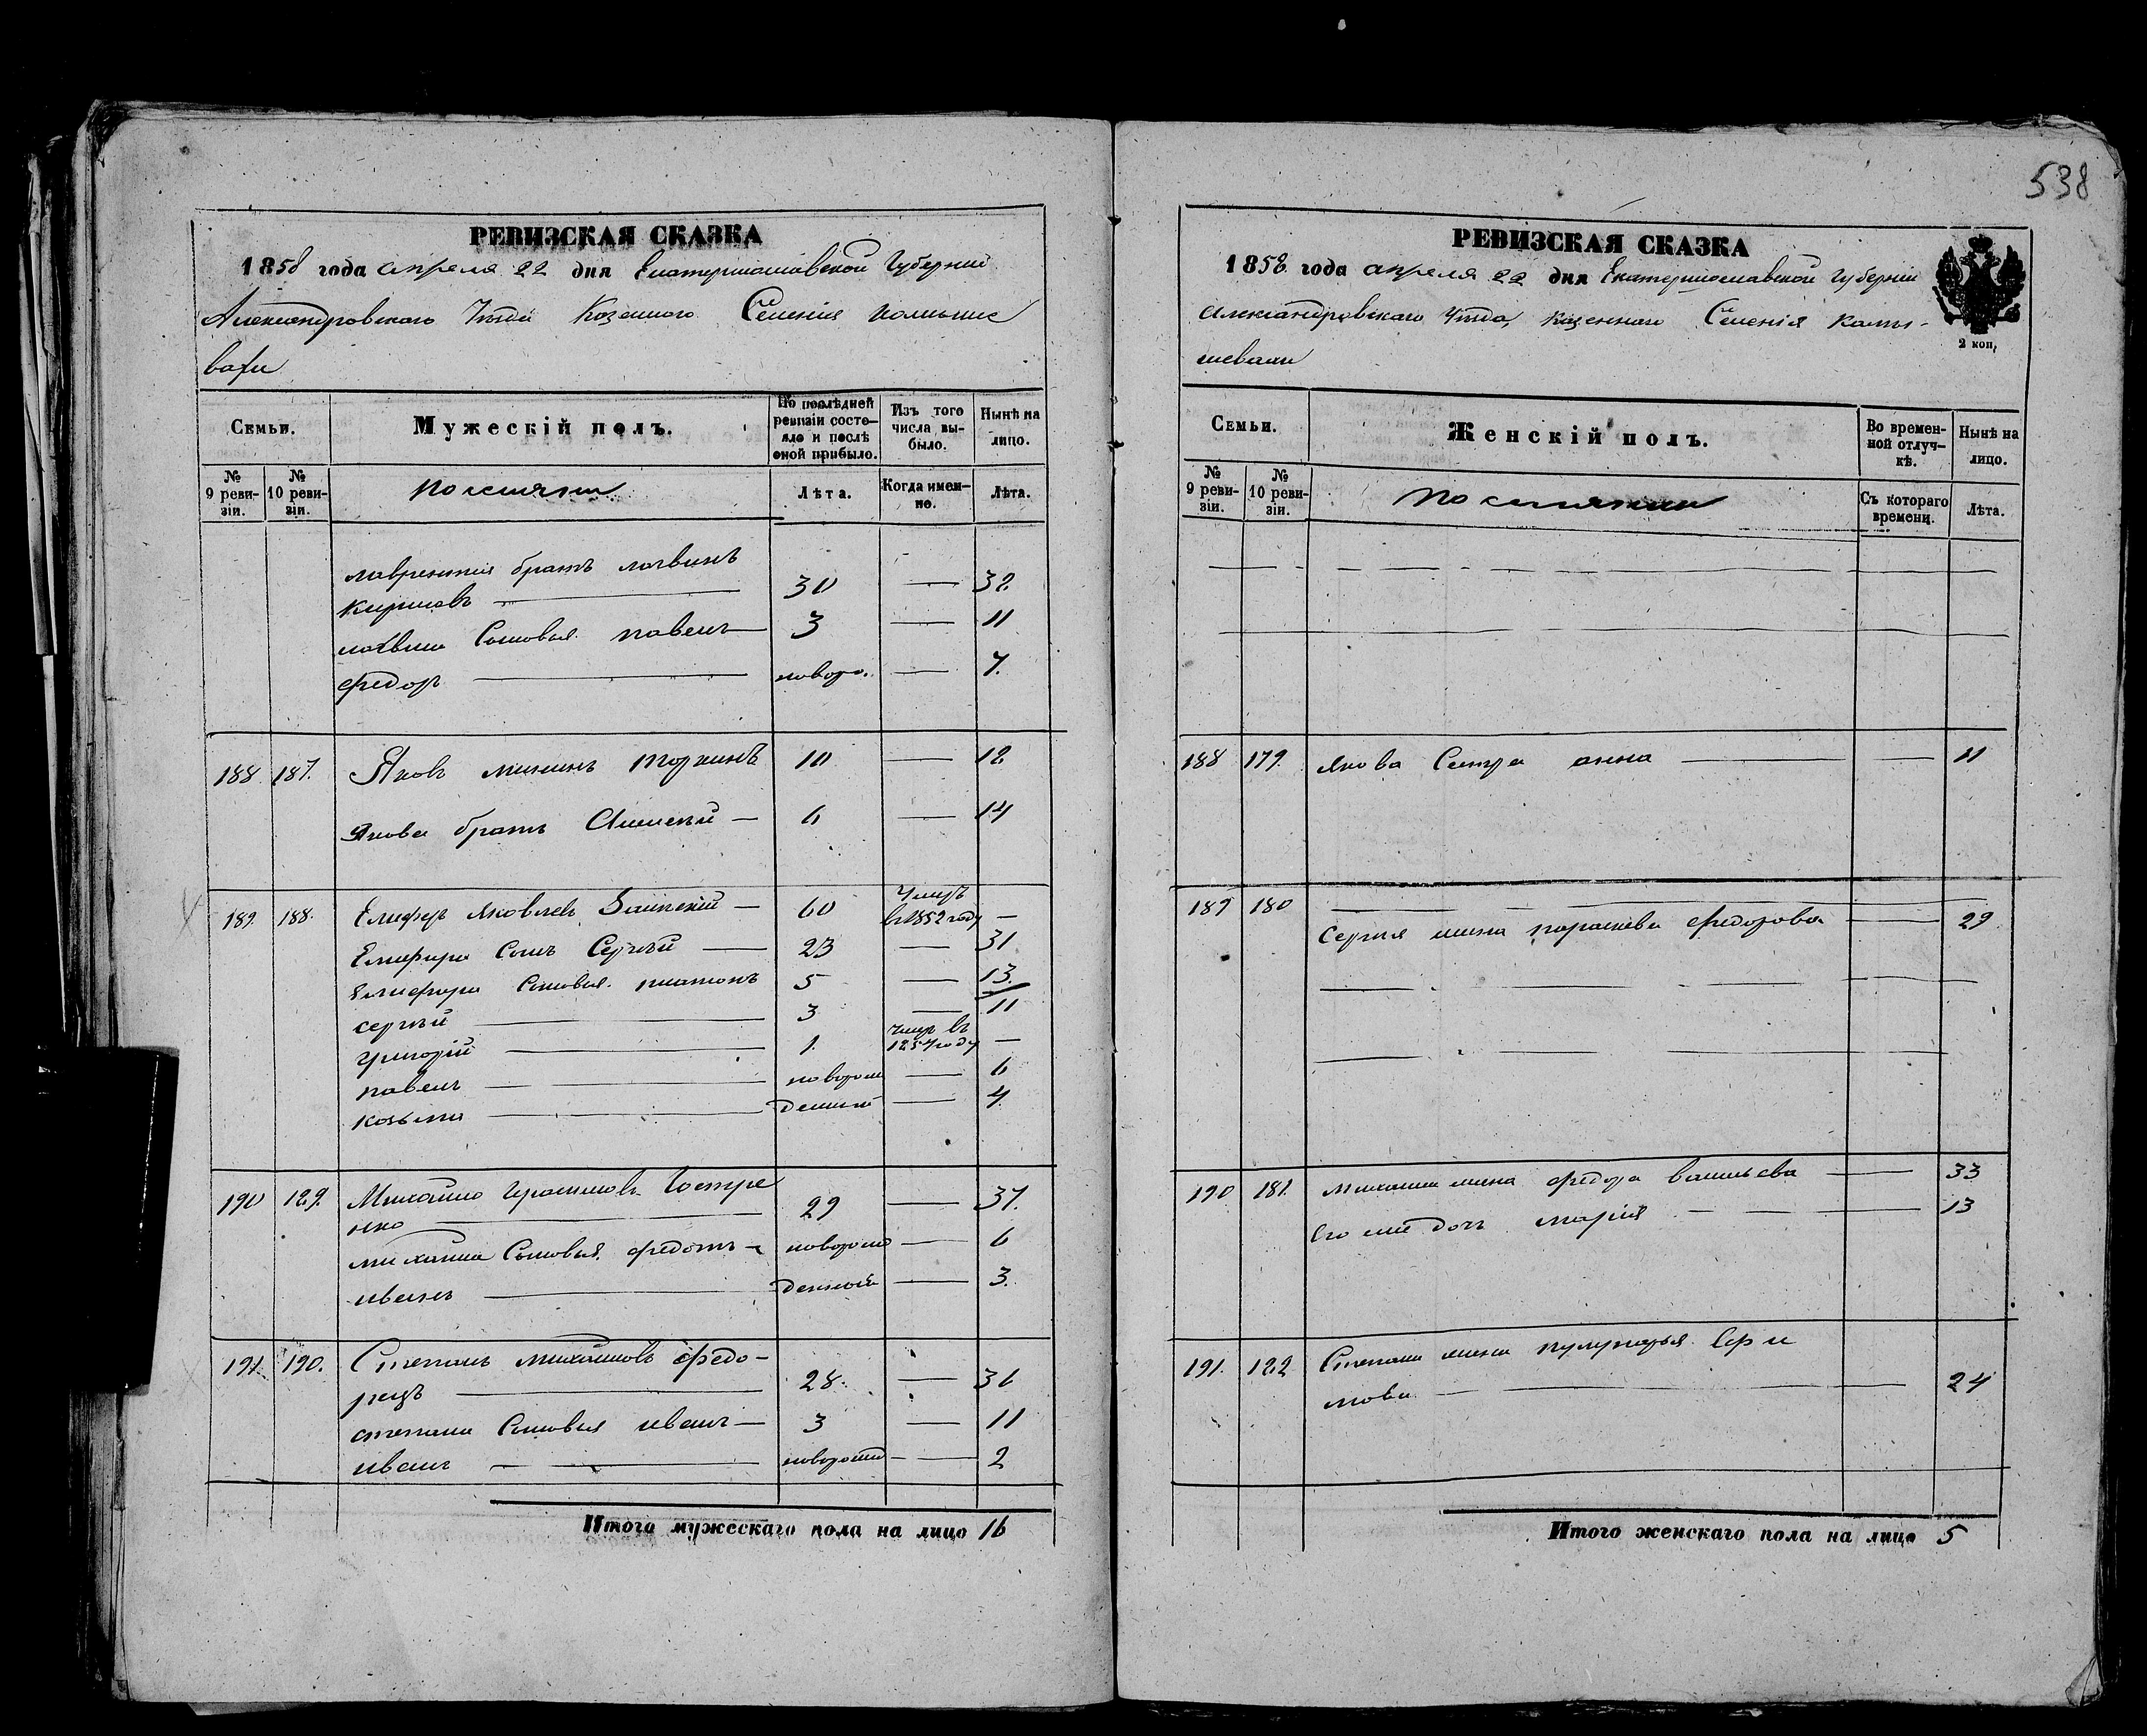 538
РЕВИЗСКАЯ СКАЗКА
1858 года апреля 22 дня Екатеринославской Губернии
Александровского Уезда Казенного Селения Камыше
вахи
Семьи.
Мужескій полъ.
По послѣдней ревизіи состояло и послѣ оной прибыло.
Изъ того числа выбыло.
Нынѣ на лицо.
№ 9 ревизіи.
№ 10 ревизіи.
Поселяни
Лѣта.
Когда именно.
Лѣта.
Лаврентия братъ Логвинъ
Кириловъ 30 — 32
Логвина Сыновья Павелъ 3 — 11
Федоръ новоро. — 7.
188 187. Яковъ Торкинъ 10 — 18
Якова братъ Алексей — 6 — 14
189. 188. Елиферъ Яковлевъ — 60 Умеръ в 1852 году —
Елифера Сынъ Сергѣй — 23 — 31
Елифера Сыновья Платонъ 5 — 13.
Сергѣй 3 — 11
Григорій 1. Умер въ 1854 году —
Павелъ новорож — 6
Козьма денный — 4.
190 189. Михайло Герасимовъ Костре
нко 29 — 37.
Михаила Сыновья Федотъ — новорож — 6
Иванъ денный — 3.
191. 190. Степанъ Михайловъ Федо-
рецъ 28. — 36
Степана Сыновья Иванъ — 3 — 11
Иванъ новорожд — 2
Итого мужескаго пола на лицо 16
РЕВИЗСКАЯ СКАЗКА
1858 года апреля 22 дня Екатеринославской Губернии
Александровскаго Уезда, Казеннаго Селенія Камы-
шевахи
2 коп,
Семьи.
Женскій полъ.
Во временной отлучкѣ.
Нынѣ на лицо.
№ 9 ревизіи.
№ 10 ревизіи.
Поселянки
Съ котораго времени.
Лѣта.
188 179. Якова Сестра Анна — 11
189 180
Сергея жена Параскева Федорова — 29
190 181. Михаила жена Федора Васильева — 33
Его же дочь Марія — 13
191. 182 Степана жена Пульхерья Ефи
мова — 24
Итого женскаго пола на лицо 5